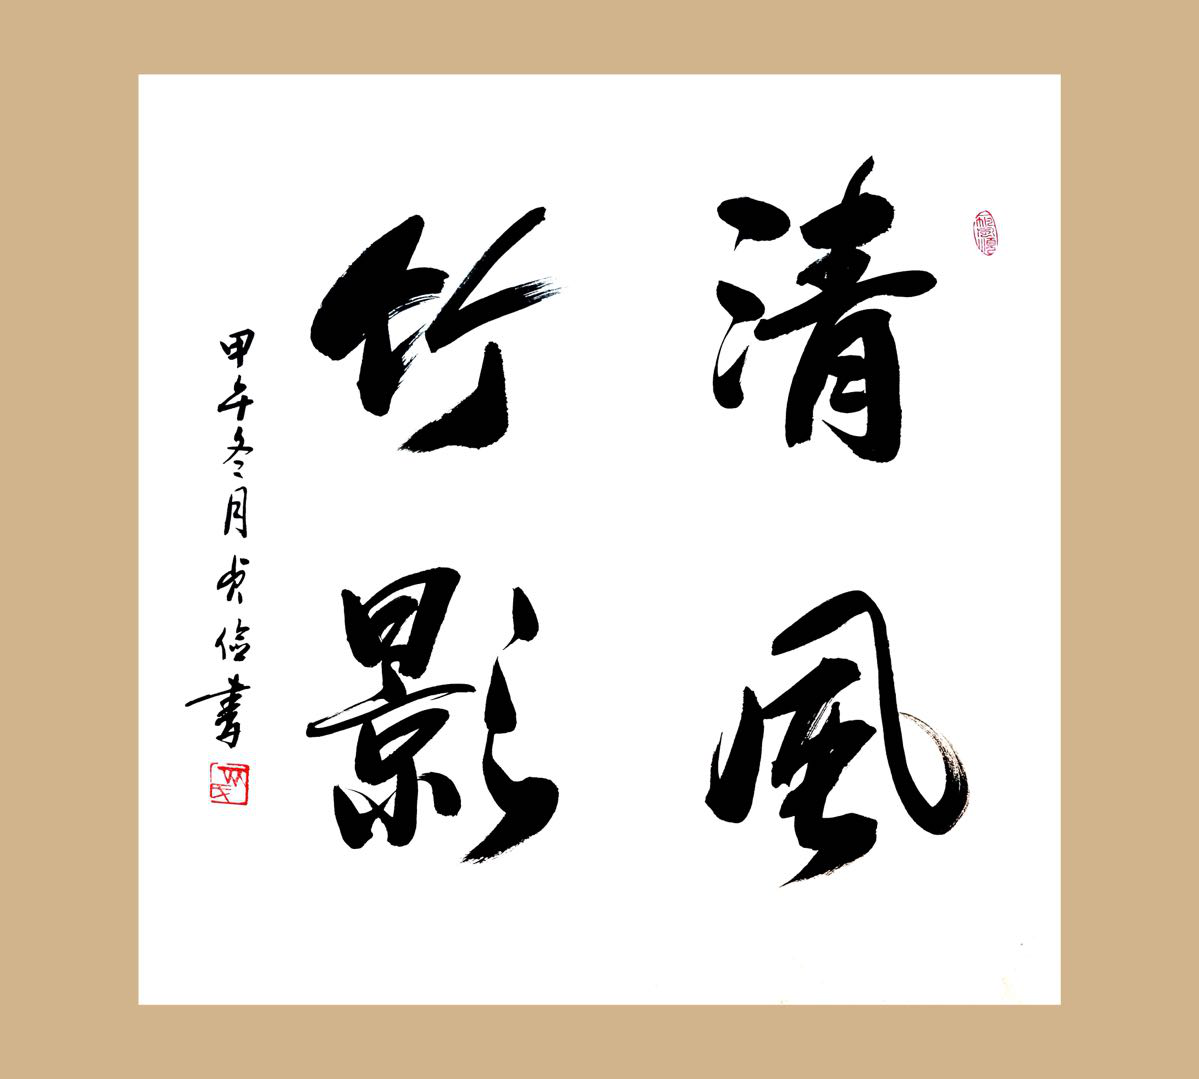 清風
竹影
甲午冬月貞儉書